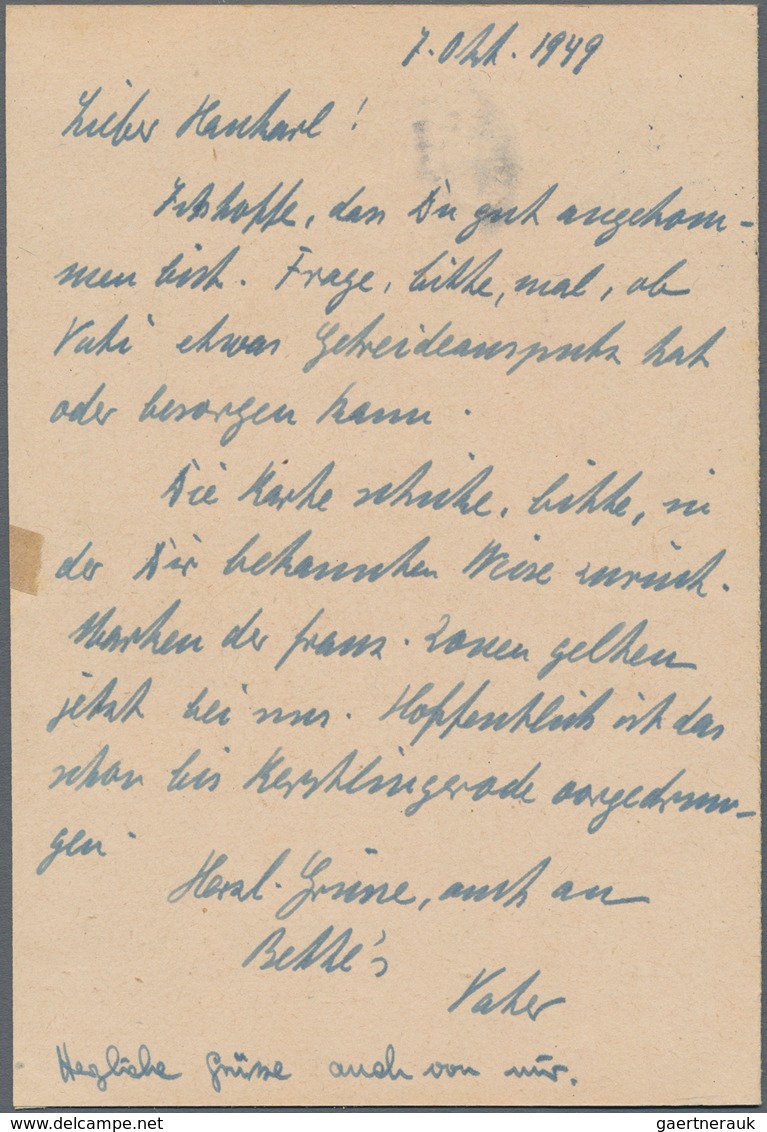 7. Okt. 1949
Lieber Hankarl!
Ich hoffe, dass Du gut angekom-
men bist. Frage, bitte, mal, ob
Vati etwas Getreideausputz hat
oder besorgen kann.
Die Karte schicke, bitte, in
der Dir bekannten Weise zurück.
Marken der franz. Zonen gelten
jetzt bei uns. Hoffentlich ist das
schon bis Kerstlingerode vorgedrun-
gen.
Herzl. Grüsse, auch an
Bette's
Vater
Herzliche Grüsse auch von mir.
gaertnerauk